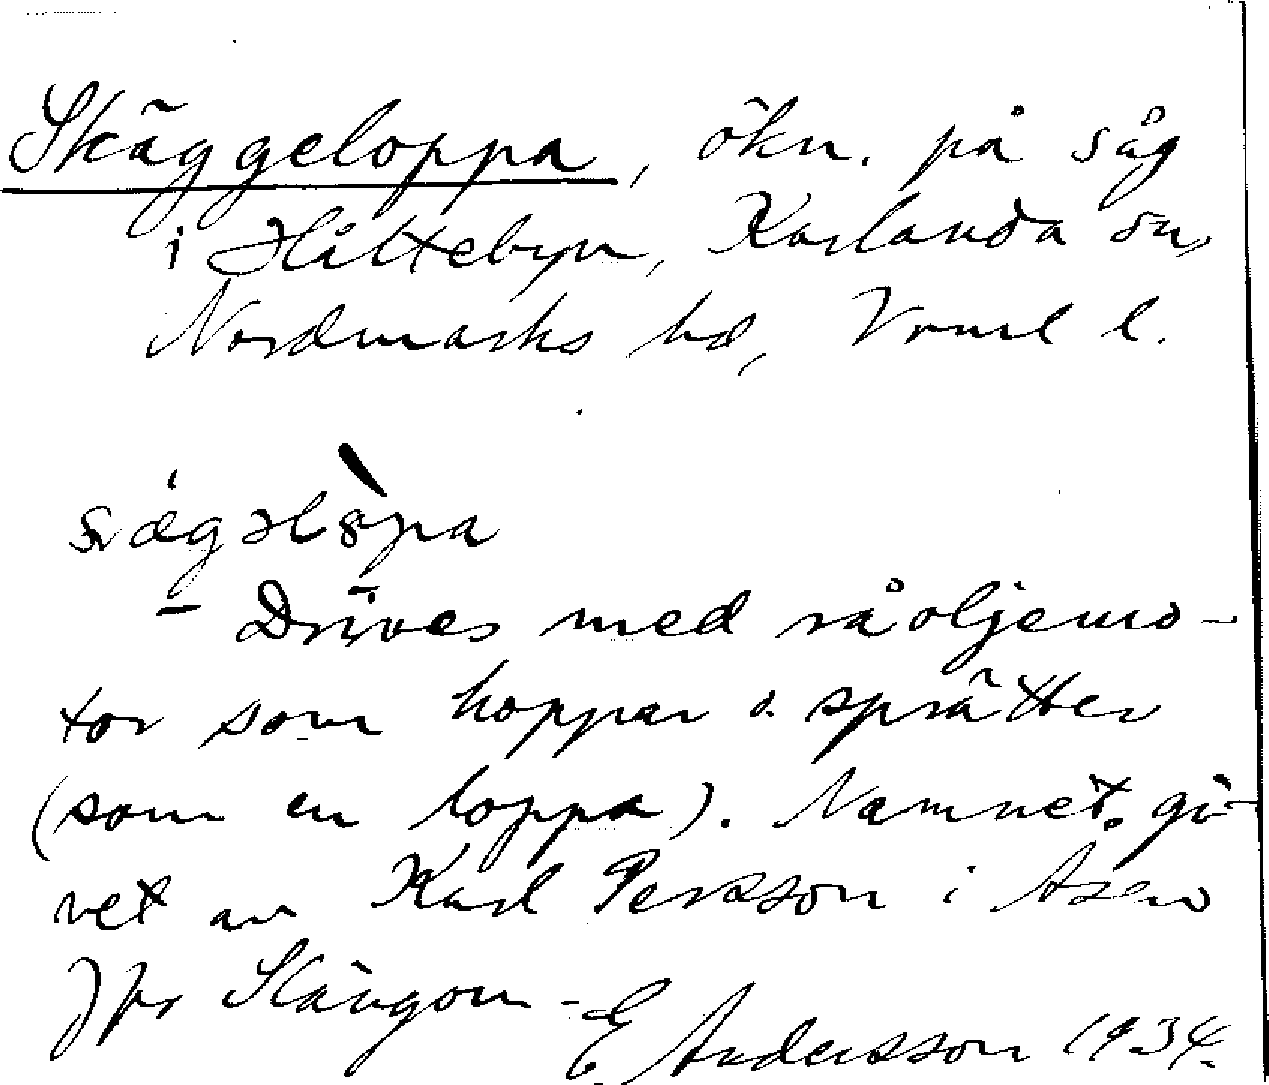 Skäggeloppa, ökn. på såg
i Håltebyn, Karlanda sn,
Nordmarks hd, Vrml l.
Drives med råoljemo-
tor som hoppar o. sprätter
(som en loppa). Namnet gi-
vet av Karl Persson i Åsen
Jfr
E Andersson 1934.